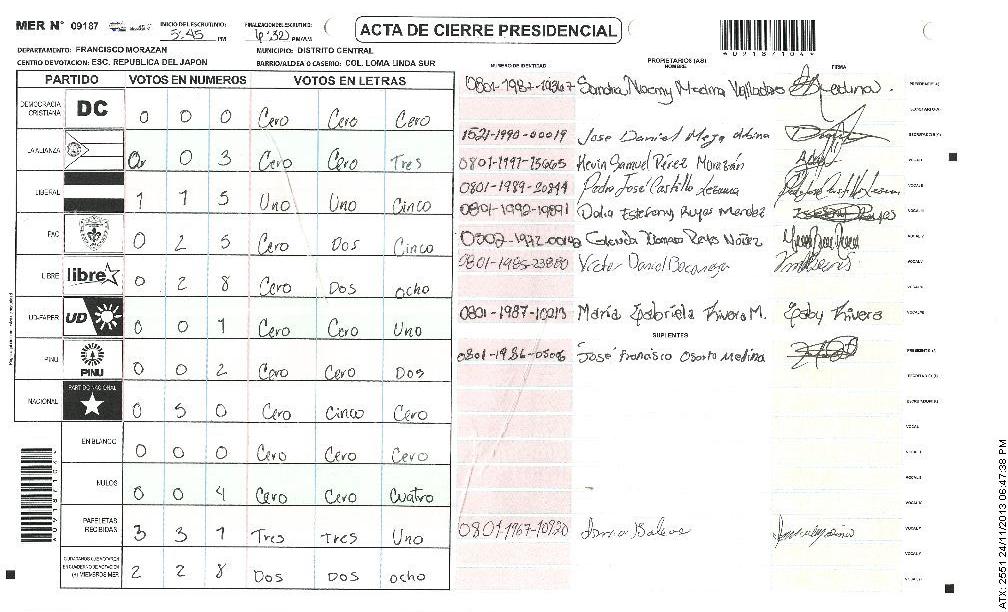 MER N° 09187 INICIO DEL ESCRUTINIO: 5:45 PM FINALIZACION ESCRUTINIO: 6:32 PM/AM
ACTA DE CIERRE PRESIDENCIAL
DEPARTAMENTO: FRANCISCO MORAZAN MUNICIPIO: DISTRITO CENTRAL
CENTRO DE VOTACION: ESC. REPUBLICA DEL JAPON BARRIO/ALDEA O CASERIO: COL. LOMA LINDA SUR
PARTIDO VOTOS EN NUMEROS VOTOS EN LETRAS
DEMOCRACIA CRISTIANA DC 0 0 0 Cero Cero Cero
LA ALIANZA 0 0 3 Cero Cero Tres
LIBERAL 1 1 5 Uno Uno Cinco
PAC 0 2 5 Cero Dos Cinco
LIBRE libre 0 2 8 Cero Dos ocho
UD-FAPER UD 0 0 1 Cero Cero Uno
PINU PINU 0 0 2 Cero Cero Dos
NACIONAL PARTIDO NACIONAL 0 5 0 Cero Cinco Cero
EN BLANCO 0 0 0 Cero Cero Cero
NULOS 0 0 4 Cero Cero Cuatro
PAPELETAS RECIBIDAS 3 3 1 Tres Tres Uno
(+) MIEMBROS MER 2 2 8 Dos Dos ocho
NUMERO DE IDENTIDAD PROPIETARIOS (AS) NOMBRE FIRMA
Sandra Noemy Medina Medina
1521-1990-00019 Jose Daniel Meja
Kevin Samuel Pérez Morazán
0801-1989-20844 Pedro José Castillo
0801-1992-19891 Dalia Estefany Reyes Mendez
Reyes Núñez
0801-1985-23880 Victor Daniel
0801-1987-10213 María Gabriela Rivera M. Gaby Rivera
SUPLENTES
0801-1986-05006 José Francisco Osorto Medina
0801-1967-10920
ATX: 2551 24/11/2013 06:47:38 PM